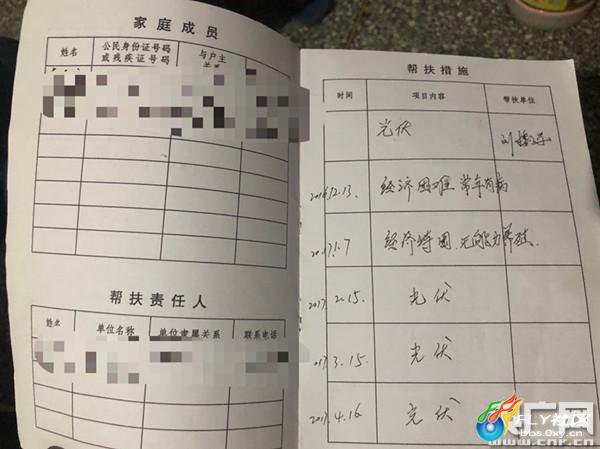 家庭成员
姓名 公民身份证号码 或残疾证号码 与户主关系
帮扶责任人
姓名 单位名称 单位隶属关系 联系电话
帮扶措施
时间 项目内容 帮扶单位
光伏
2016.12.13. 经济困难 常年有病
2017.1.7 经济特困 无能力
2017.2.15. 光伏
2017.3.15. 光伏
2017.4.16 光伏
FLY社区
bbs.0xy.cn
www.cnr.cn